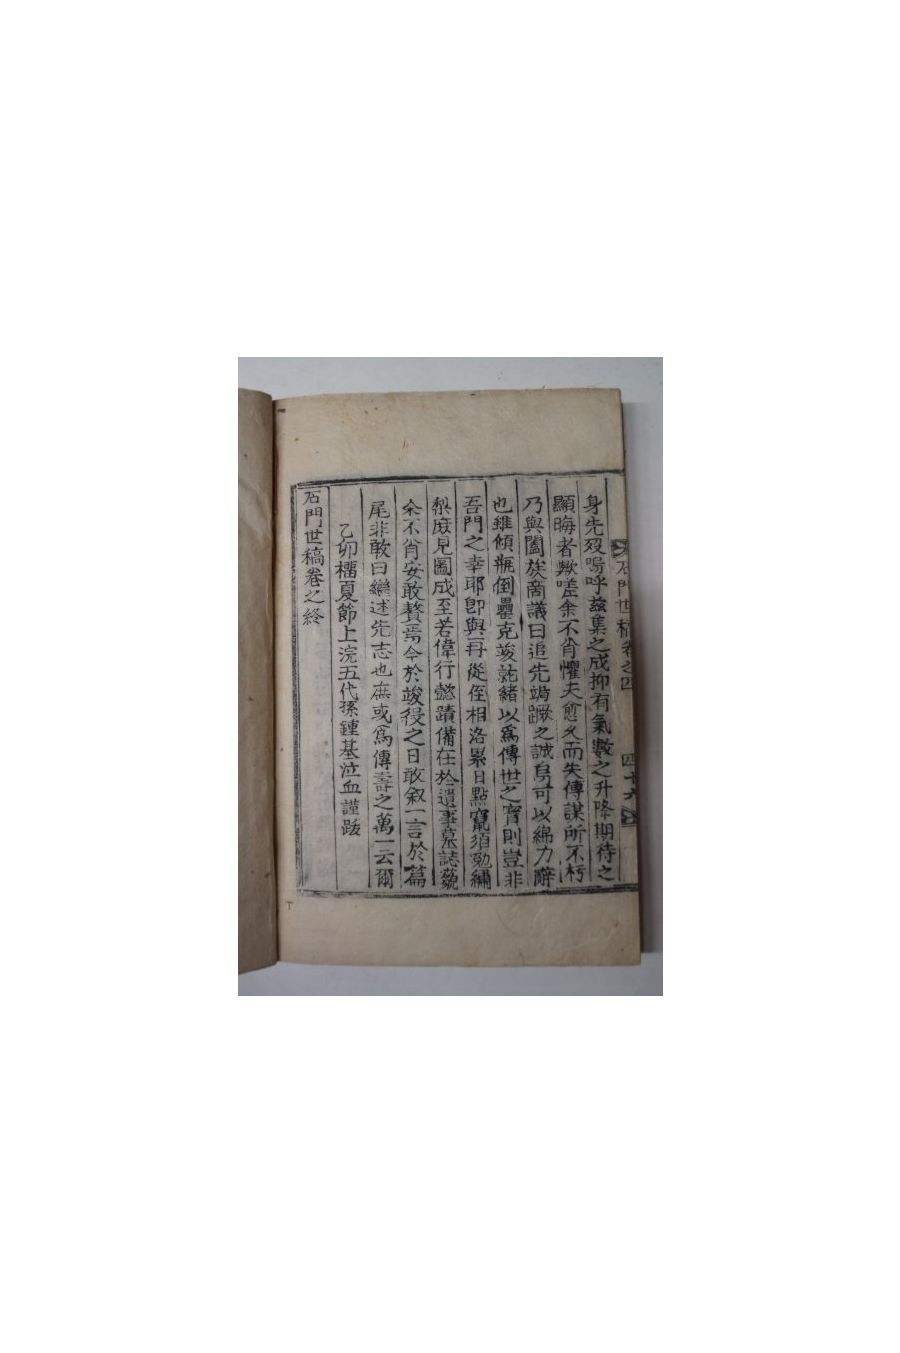 石門世稿卷之四 四十六
身先歿嗚呼玆集之成抑有氣數之升降期待之
顯晦者歟嗟余不肖懼夫愈久而失傳謀所不朽
乃與闔族商議曰追先竭蹶之誠烏可以綿力辭
也雖傾甁倒罍克竣就緖以爲傳世之寶則豈非
吾門之幸耶卽與再從侄相洛累日點竄須勁繡
梨庶見圖成至若偉行懿蹟備在於遺事墓誌藐
余不肖安敢贅焉今於竣役之日敢叙一言於篇
尾非敢曰繼述先志也庶或爲傳壽之萬一云爾
乙卯榴夏節上浣五代孫鍾基泣血謹跋
石門世稿卷之終